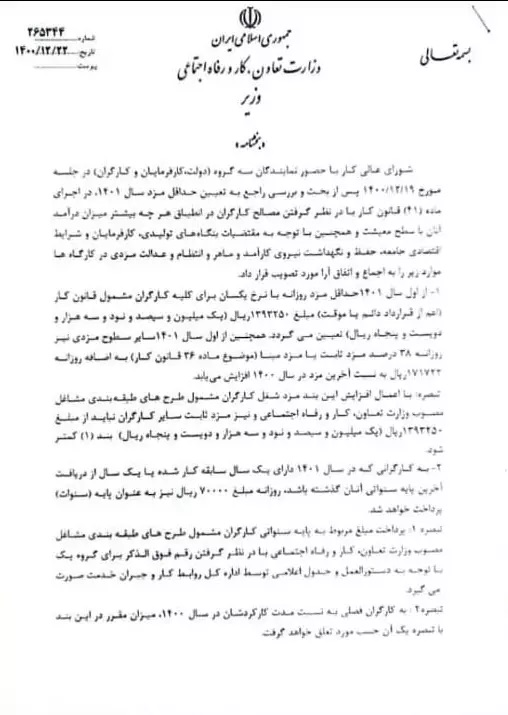 بسمه تعالی
جمهوری اسلامی ایران
وزارت تعاون، کار و رفاه اجتماعی
وزیر
شماره ۲۶۵۳۴۴
تاریخ: ۱۴۰۰/۱۲/۲۲
پیوست
«بخشنامه»
شورای عالی کار با حضور نمایندگان سه گروه (دولت،کارفرمایان و کارگران) در جلسه
مورخ ۱۴۰۰/۱۲/۱۹ پس از بحث و بررسی راجع به تعیین حداقل مزد سال ۱۴۰۱، در اجرای
ماده (۴۱) قانون کار با در نظر گرفتن مصالح کارگران در انطباق هر چه بیشتر میزان درآمد
آنان با سطح معیشت و همچنین با توجه به مقتضیات بنگاه‌های تولیدی، کارفرمایان و شرایط
اقتصادی جامعه، حفظ و نگهداشت نیروی کارآمد و ماهر و انتظام و عدالت مزدی در کارگاه ها
موارد زیر را به اجماع و اتفاق آرا مورد تصویب قرار داد.
۱- از اول سال ۱۴۰۱حداقل مزد روزانه با نرخ یکسان برای کلیه کارگران مشمول قانون کار
(اعم از قرارداد دائم یا موقت) مبلغ ۱۳۹۳۲۵۰ریال (یک میلیون و سیصد و نود و سه هزار و
دویست و پنجاه ریال) تعیین می گردد. همچنین از اول سال ۱۴۰۱سایر سطوح مزدی نیز
روزانه ۳۸ درصد مزد ثابت یا مزد مبنا (موضوع ماده ۳۶ قانون کار) به اضافه روزانه
۱۷۱۷۲۲ریال به نسبت آخرین مزد در سال ۱۴۰۰ افزایش می‌یابد.
تبصره: با اعمال افزایش این بند مزد شغل کارگران مشمول طرح های طبقه‌بندی مشاغل
مصوب وزارت تعاون، کار و رفاه اجتماعی و نیز مزد ثابت سایر کارگران نباید از مبلغ
۱۳۹۳۲۵۰ریال (یک میلیون و سیصد و نود و سه هزار و دویست و پنجاه ریال) بند (۱) کمتر
شود.
۲- به کارگرانی که در سال ۱۴۰۱ دارای یک سال سابقه کار شده یا یک سال از دریافت
آخرین پایه سنواتی آنان گذشته باشد، روزانه مبلغ ۷۰۰۰۰ ریال نیز به عنوان پایه (سنوات)
پرداخت خواهد شد.
تبصره ۱: پرداخت مبلغ مربوط به پایه سنواتی کارگران مشمول طرح های طبقه بندی مشاغل
مصوب وزارت تعاون، کار و رفاه اجتماعی با در نظر گرفتن رقم فوق الذکر برای گروه یک
با توجه به دستورالعمل و جدول اعلامی توسط اداره کل روابط کار و جبران خدمت صورت
می گیرد.
تبصره۲: به کارگران فصلی به نسبت مدت کارکردشان در سال ۱۴۰۰، میزان مقرر در این بند
یا تبصره یک آن حسب مورد تعلق خواهد گرفت.